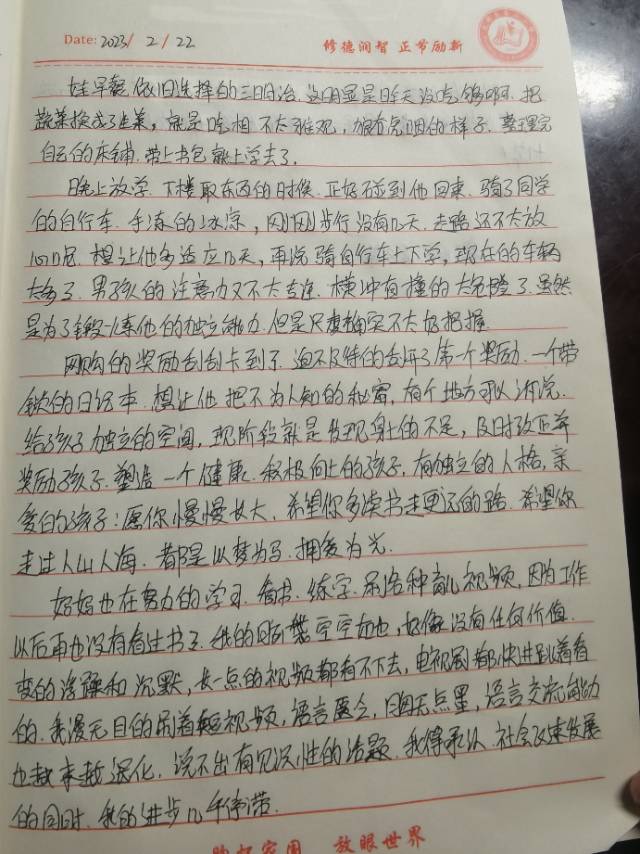 Date: 2023/ 2 / 22
修德润智 正节励新
娃早餐依旧选择的三明治.这明显是昨天没吃够啊.把
蔬菜换成了生菜,就是吃相不太雅观,狼吞虎咽的样子.整理完
自己的床铺.带上书包就上学去了.
晚上放学.下楼取东西的时候.正好碰到他回来.骑了同学
的自行车.手冻的冰凉,刚刚步行没有几天.走路还不太放
心呢.想让他多适应几天,再说骑自行车上下学,现在的车辆
太多了.男孩人的注意力又不太专注.横冲直撞的太危险了.虽然
是为了锻炼他的独立能力.但是尺度确实不太好把握.
网购的奖励刮刮卡到了.迫不及待的刮开了第一个奖励.一个带
锁的日记本.想让他把不为人知的秘密,有个地方可以诉说.
给孩子独立的空间,现阶段就是发现身上的不足,及时改正并
奖励孩子.塑造一个健康.积极向上的孩子.有独立的人格,亲
爱的孩子:愿你慢慢长大.希望你多读书走更远的路.希望你
走过人山人海.都是以梦为马.拥爱为光.
妈妈也在努力的学习.看书.练字.刷各种育儿视频,因为工作
以后再也没有看过书了.我的空空如也,好像没有任何价值.
变的浮躁和沉默,长一点的视频都看不下去,电视剧都快进跳着看
的.我漫无目的刷着短视频,语言匮乏,胸无点墨,语言交流能力
也越来越退化.说不出有见识性的话题.我得承认.社会改速发展
的同时.我的进步几乎停滞.
胸怀家国 放眼世界